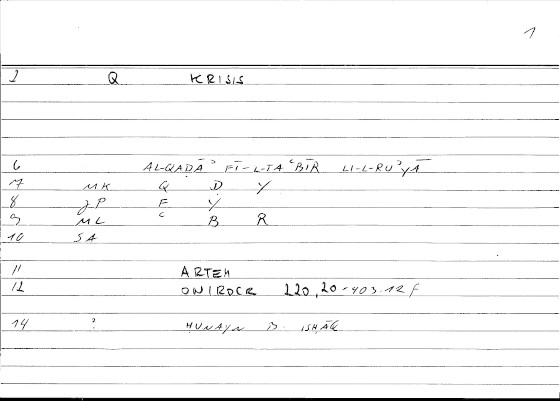 1
1 Q KRISIS
6 AL-QAḌĀʾ FĪ-L-TAʿBĪR LI-L-RUʾYĀ
7 MK Q Ḍ Y
8 JP F Y
9 ML ʿ B R
10 SA
11 ARTEM
12 ONIROCR 220,20-403.12 f
14 ? ḤUNAYN B. ISḤĀQ